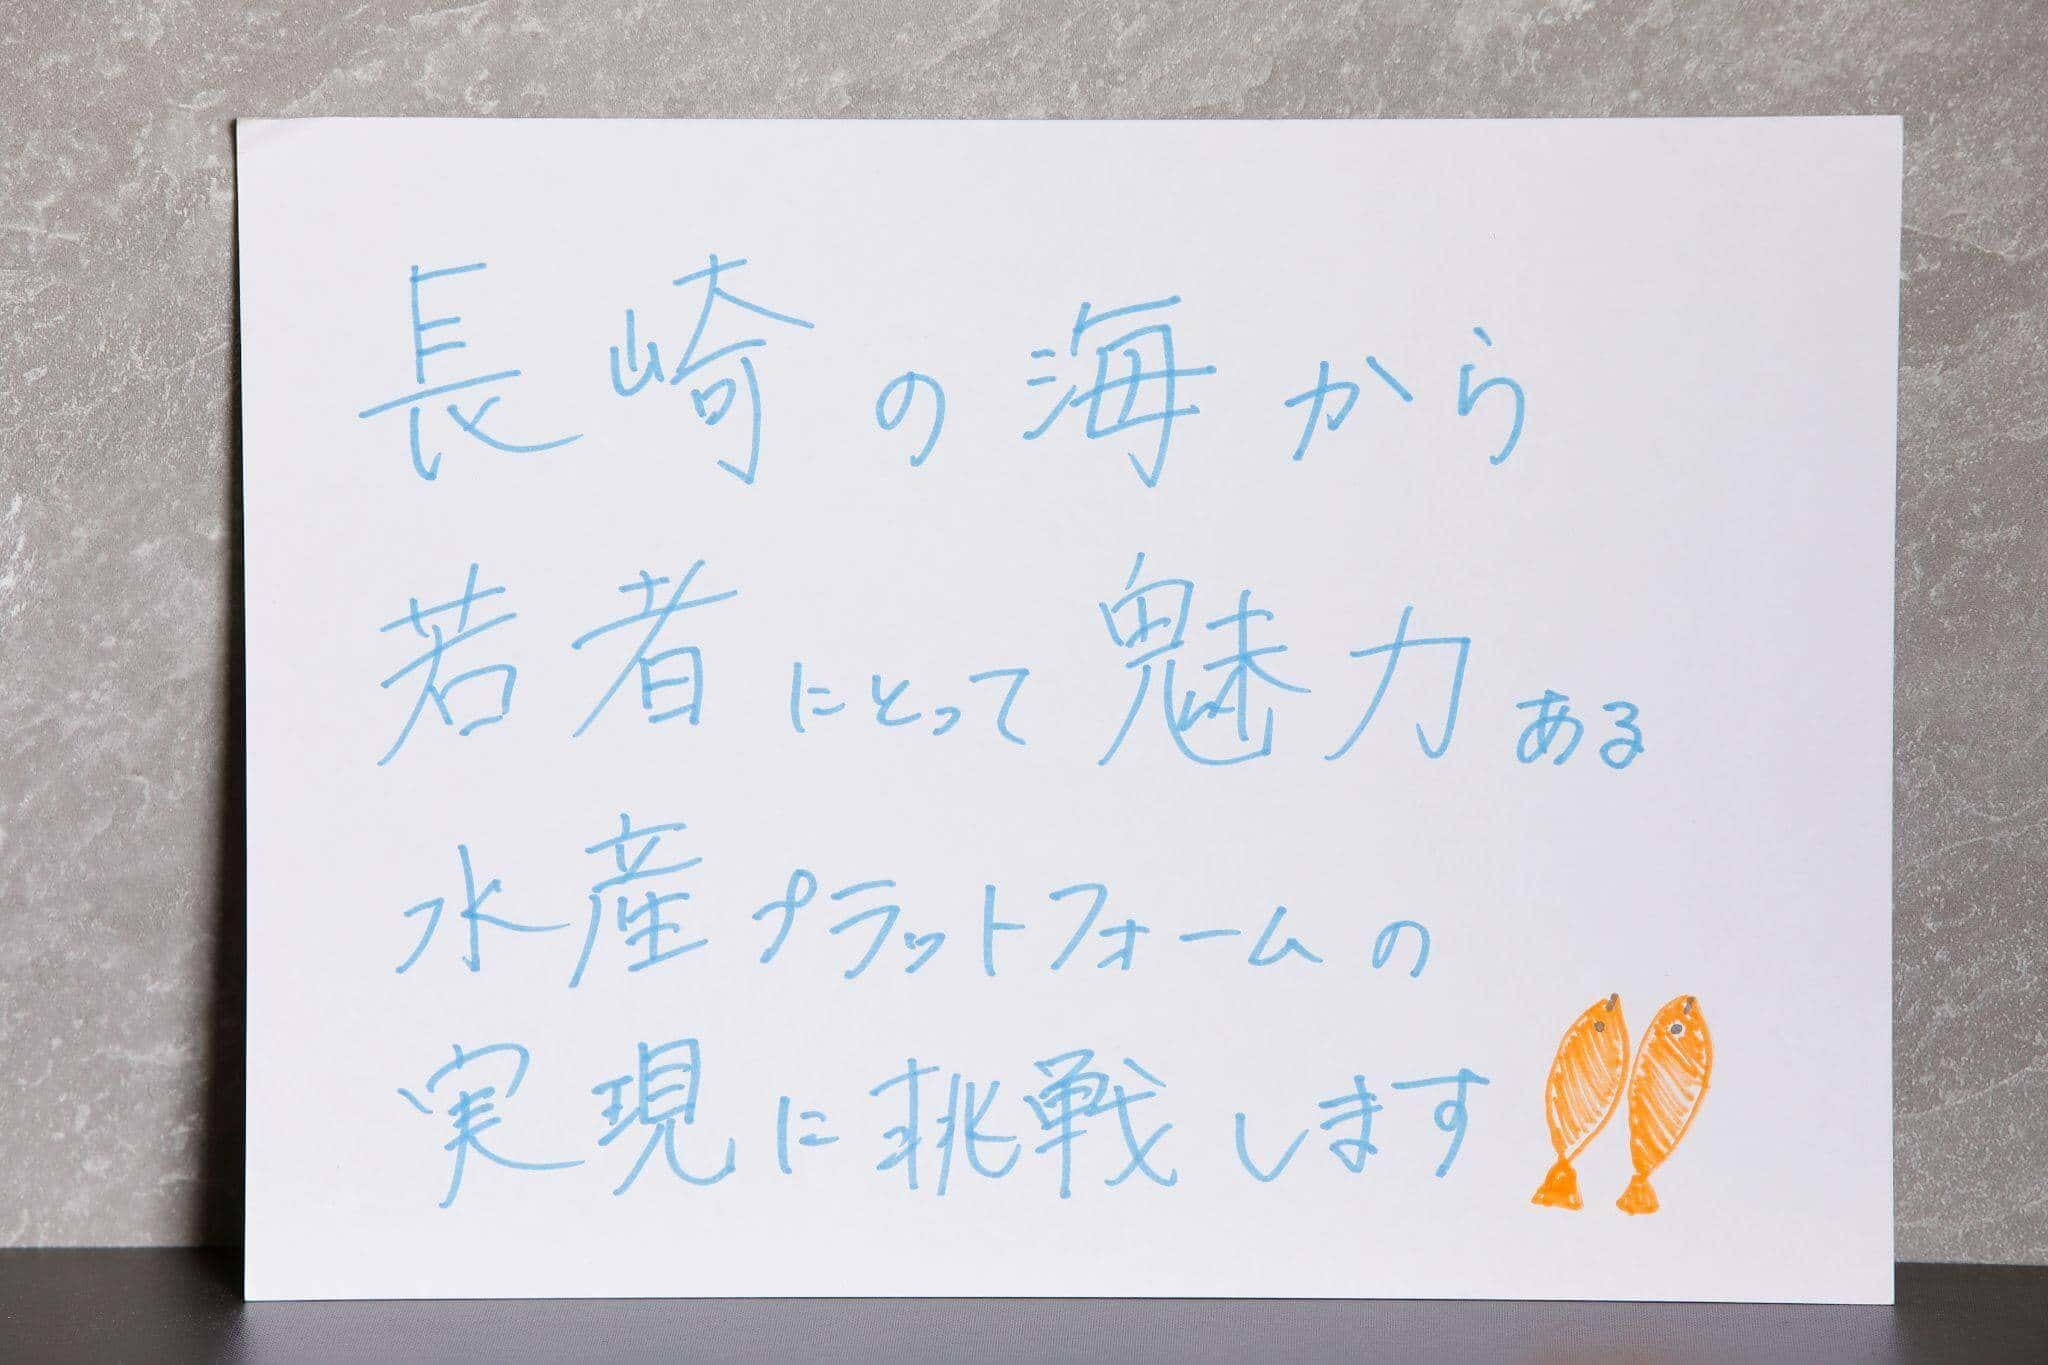 長崎の海から
若者にとって魅力ある
水産プラットフォームの
実現に挑戦します